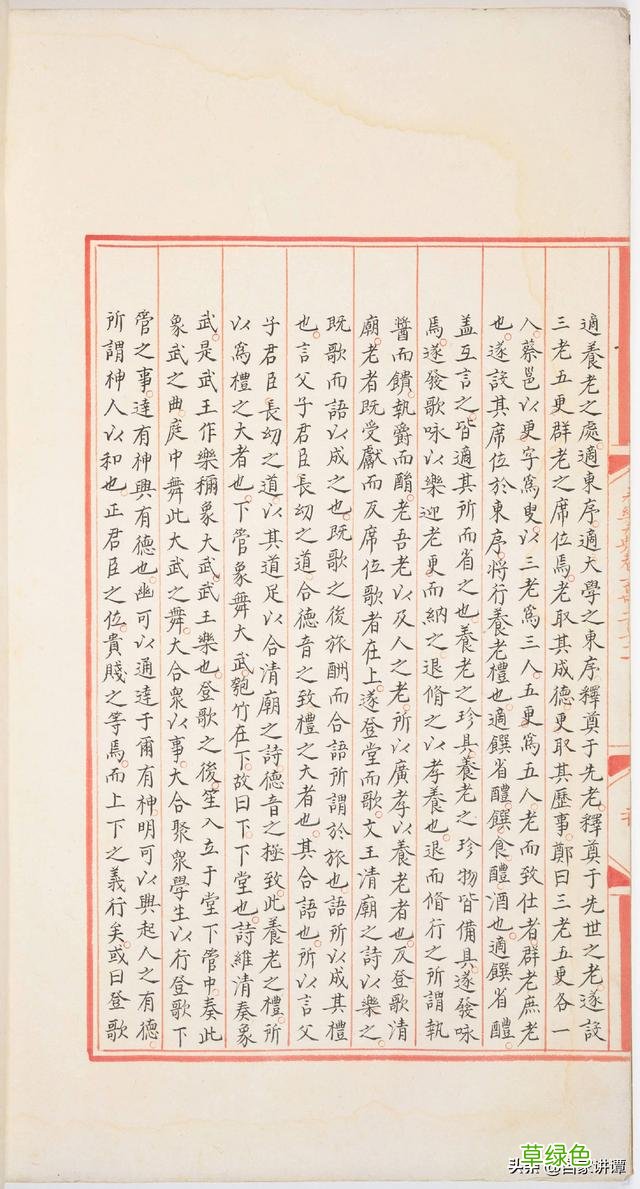 適養老之處適東序適大學之東序釋奠于先老釋奠于先世之老遂設
三老五更群老之席位焉老取其成德更取其歷事鄭曰三老五更各一
人蔡邕以更字爲叟以三老爲三人五更爲五人老而致仕者群老庶老
也遂設其席位於東序將行養老禮也適饌省醴饌食醴酒也適饌省醴
蓋互言之皆適其所而省之也養老之珍具養老之珍物皆備具遂發咏
焉遂發歌咏以樂迎老更而納之退脩之以孝養也退而脩行之所謂執
醬而饋執爵而酳老吾老以及人之老所以廣孝以養老者也反登歌清
廟老者既受獻而反席位歌者在上遂登堂而歌文王清廟之詩以樂之
既歌而語以成之也既歌之後旅酬而合語所謂於旅也語所以成其禮
也言父子君臣長幼之道合德音之致禮之大者也其合語也所以言父
子君臣長幼之道以其道足以合清廟之詩德音之極致此養老之禮所
以爲禮之大者也下管象舞大武匏竹在下故曰下下堂也詩維清奏象
武是武王作樂稱象大武武王樂也登歌之後笙入立于堂下管中奏此
象武之曲庭中舞此大武之舞大合衆以事大合聚衆學生以行登歌下
管之事達有神興有德也幽可以通達于爾有神明可以興起人之有德
所謂神人以和也正君臣之位貴賤之等焉而上下之義行矣或曰登歌
草绿色
头条 @百家讲谭